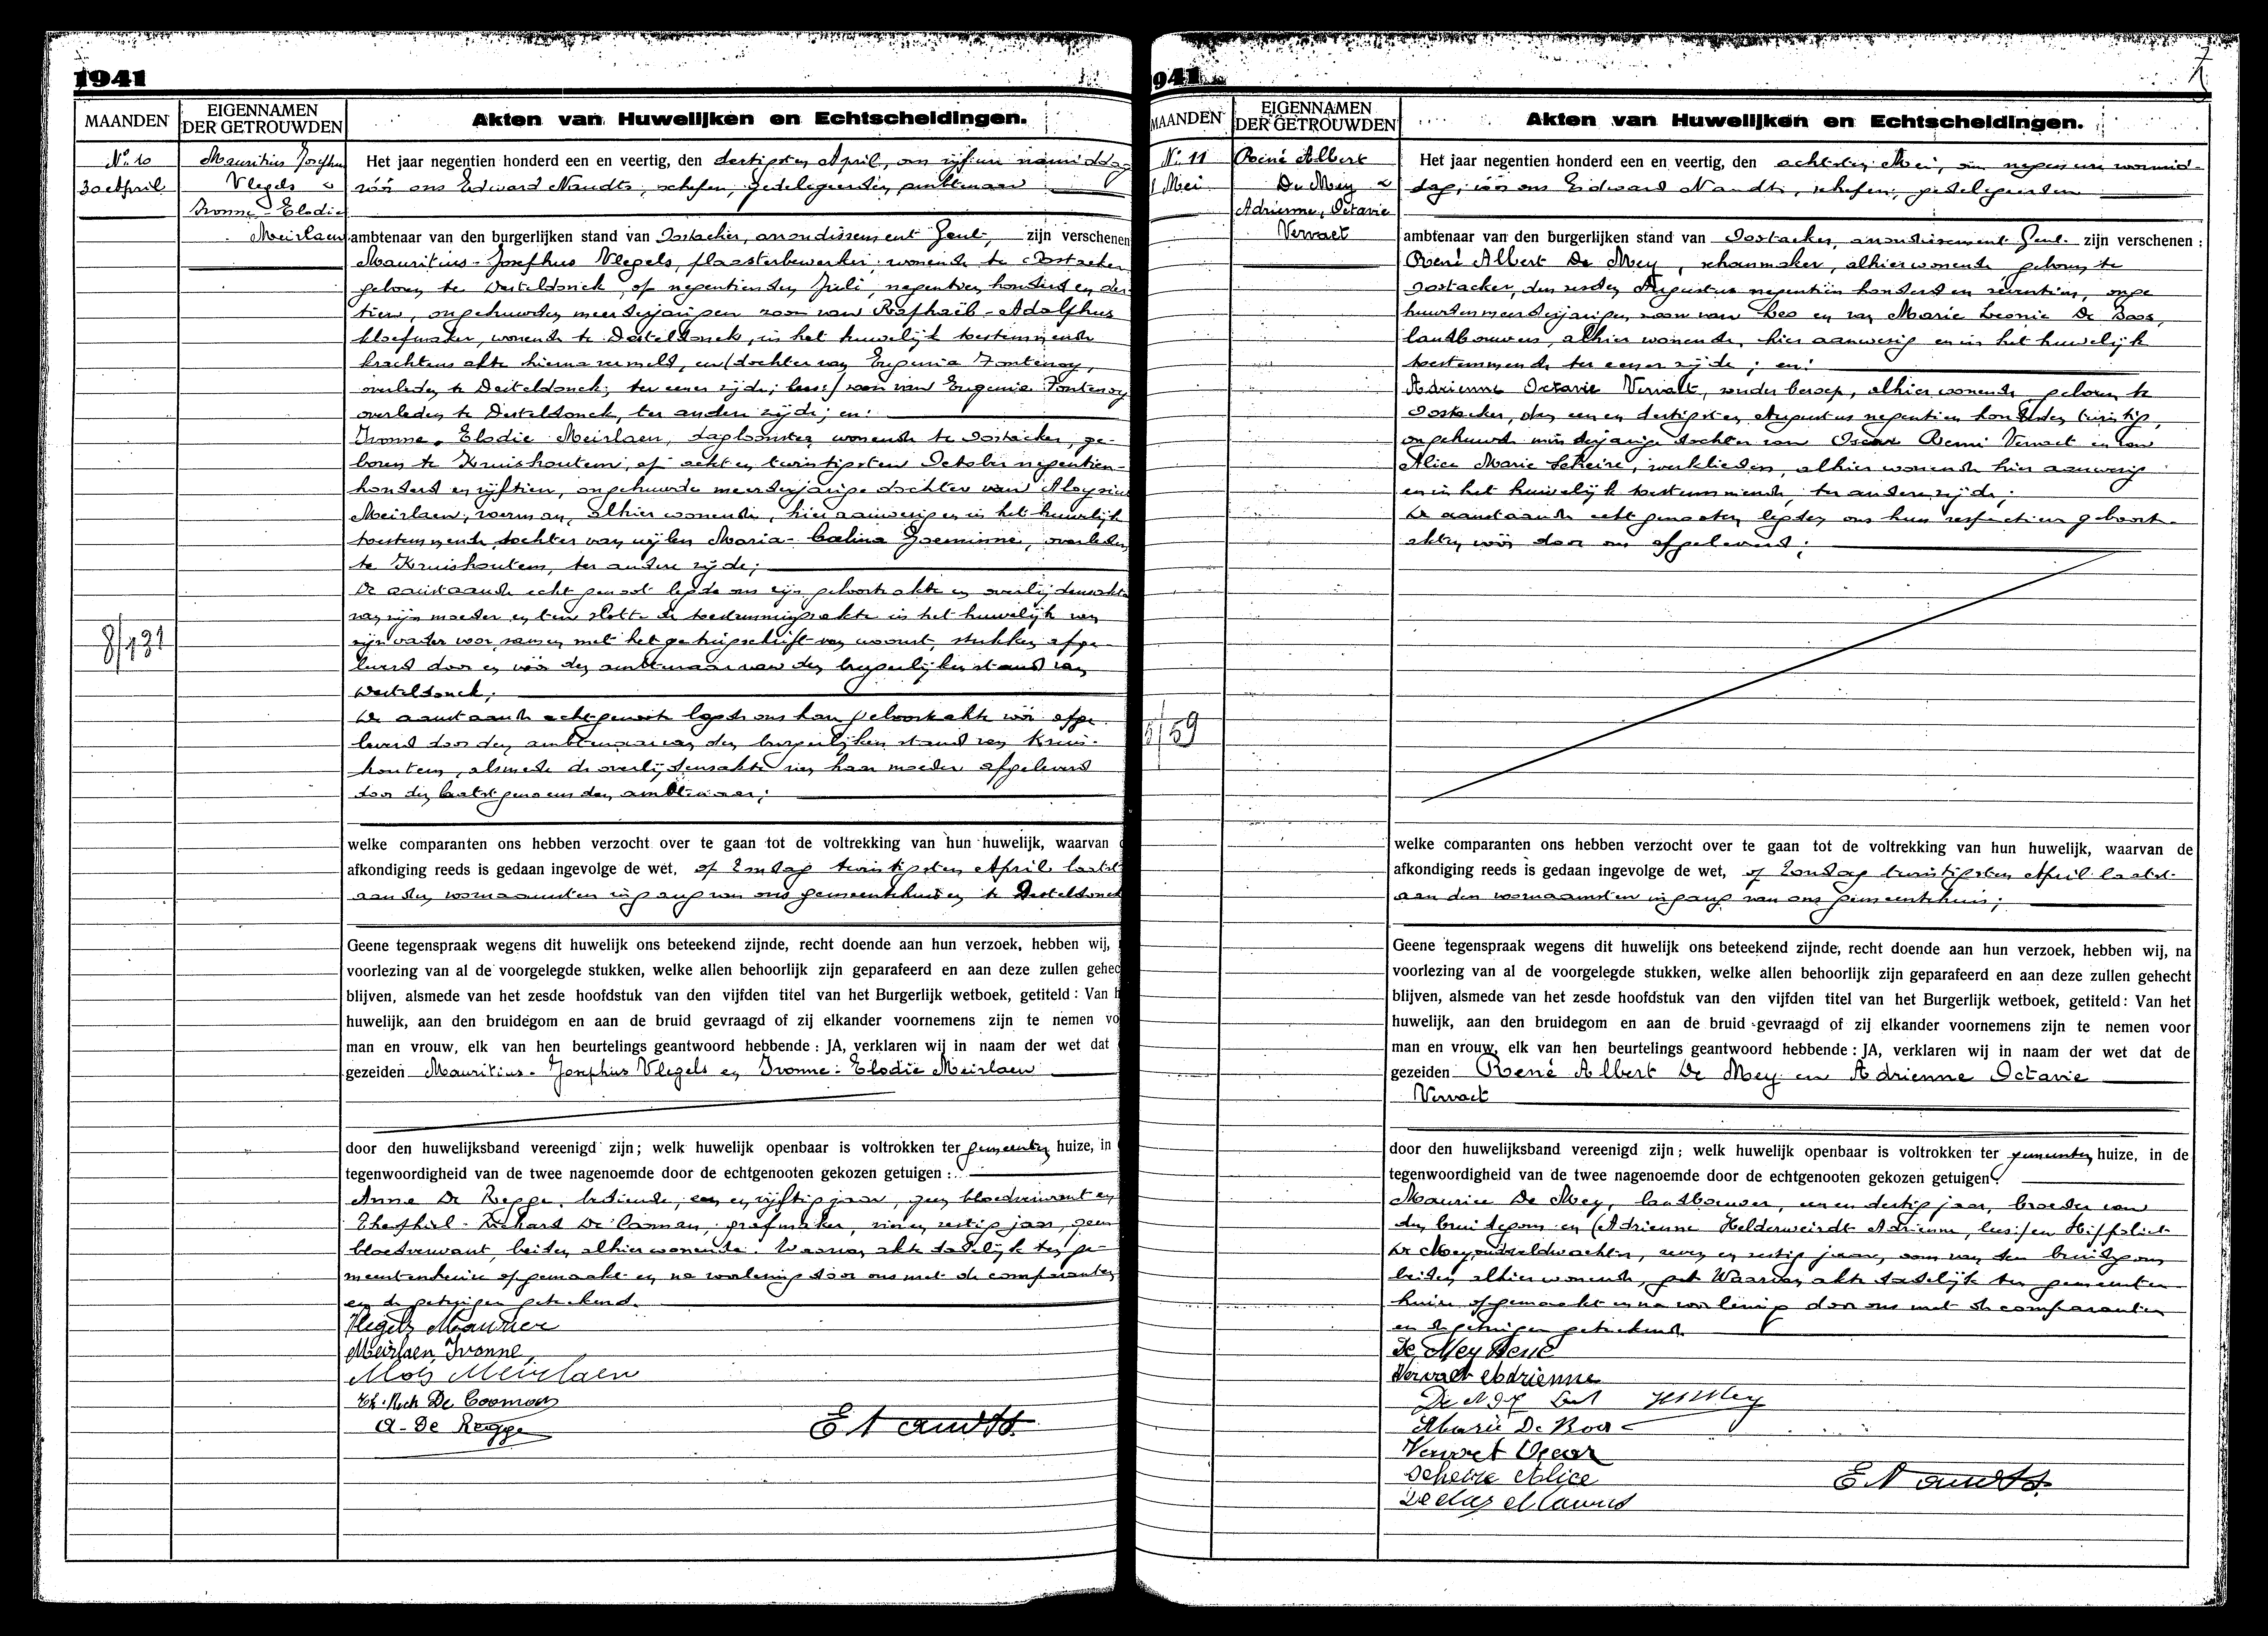 1941
MAANDEN
EIGENNAMEN
DER GETROUWDEN
Akten van Huwelijken en Echtscheidingen.
No. 10
30 April
Mauritius Josephus
Vlegels &
Ivonne-Elodie
Meirlaen
8/131
Het jaar negentien honderd een en veertig, den dertigsten April, om vijf ure namiddag
vóór ons Edward Naudts, schepen, gedelegeerden ambtenaar
ambtenaar van den burgerlijken stand van Oostacker, arrondissement Gent, zijn verschenen
Mauritius-Josephus Vlegels, plaasterbewerker, wonende te Oostacker
geboren te Desteldonck, op negentienden Juli, negentien honderd en der
tien, ongehuwden meerderjarigen zoon van Raphaël-Adolphus
kloefmaker, wonende te Desteldonck, in het huwelijk toestemmende
krachtens akte hierna vermeld, en (dochter van Eugenia Fontenoy,
overleden te Desteldonck; ter eener zijde; lees:) zoon van Eugenia Fontenoy
overleden te Desteldonck, ter andere zijde; en:
Ivonne-Elodie Meirlaen, dagloonster, wonende te Oostacker, ge-
boren te Kruishoutem, op acht en twintigsten October negentien-
honderd en vijftien, ongehuwde meerderjarige dochter van Aloysius
Meirlaen, voerman, alhier wonende, hier aanwezig en in het huwelijk
toestemmende, dochter van wijlen Maria-Calina Goeminne, overleden
te Kruishoutem, ter andere zijde;
De aanstaande echtgenoot legde ons zijn geboorteakte en overlijdensakte
van zijn moeder en ten slotte de toestemmingsakte in het huwelijk van
zijn vader voor, samen met het getuigschrift van woonst, stukken afge-
leverd door en vóór den ambtenaar van den burgerlijken stand van
Desteldonck;
De aanstaande echtgenoote legde ons haar geboorteakte vóór afge-
leverd door den ambtenaar van den burgerlijken stand van Kruis-
houtem, alsmede de overlijdensakte van haar moeder afgeleverd
door den laatstgenoemden ambtenaar;
welke comparanten ons hebben verzocht over te gaan tot de voltrekking van hun huwelijk, waarvan
afkondiging reeds is gedaan ingevolge de wet, op Zondag twintigsten April laatst
aan den voornaamsten ingang van ons gemeentehuis en te Desteldonck
Geene tegenspraak wegens dit huwelijk ons beteekend zijnde, recht doende aan hun verzoek, hebben wij,
voorlezing van al de voorgelegde stukken, welke allen behoorlijk zijn geparafeerd en aan deze zullen gehec
blijven, alsmede van het zesde hoofdstuk van den vijfden titel van het Burgerlijk wetboek, getiteld: Van h
huwelijk, aan den bruidegom en aan de bruid gevraagd of zij elkander voornemens zijn te nemen vo
man en vrouw, elk van hen beurtelings geantwoord hebbende : JA, verklaren wij in naam der wet dat
gezeiden Mauritius-Josephus Vlegels en Ivonne-Elodie Meirlaen
door den huwelijksband vereenigd zijn; welk huwelijk openbaar is voltrokken ter gemeenten huize, in
tegenwoordigheid van de twee nagenoemde door de echtgenooten gekozen getuigen :
Anna De Regge, bediende, een en vijftig jaar, geen bloedverwant en
Theophiel-Richard De Cooman, grafmaker, zes en zestig jaar, geen
bloedverwant, beiden alhier wonende. Waarvan akte dadelijk ten ge-
meentenhuize opgemaakt en na voorlezing door ons met de comparanten
en de getuigen geteekend.
Vlegels Maurice
Meirlaen, Ivonne,
Alois Meirlaen
Th. Rich De Cooman
A. De Regge
E Naudts
941
7
MAANDEN
EIGENNAMEN
DER GETROUWDEN
Akten van Huwelijken en Echtscheidingen.
No. 11
Mei
René Albert
De Mey &
Adrienne, Octavie
Vervaet
/59
Het jaar negentien honderd een en veertig, den achtsten Mei, om negen ure voormid-
dag, vóór ons Edward Naudts, schepen, gedelegeerden
ambtenaar van den burgerlijken stand van Oostacker, arrondissement Gent zijn verschenen :
René Albert De Mey, schoenmaker, alhier wonende, geboren te
Oostacker, den zesden Augustus negentien honderd en zeventien, onge
huwden meerderjarigen zoon van Leo en van Marie Leonie De Boos,
landbouwers, alhier wonende, hier aanwezig en in het huwelijk
toestemmende ter eener zijde; en:
Adrienne Octavie Vervaet, zonder beroep, alhier wonende, geboren te
Oostacker, den een en dertigsten Augustus negentien honderd en twintig,
ongehuwde minderjarige dochter van Oscar Remi Vervaet en van
Alice Marie Scheire, werklieden, alhier wonende hier aanwezig
en in het huwelijk toestemmende, ter andere zijde;
De aanstaande echtgenooten legden ons hun respectieve geboorte-
akten vóór door ons afgeleverd;
welke comparanten ons hebben verzocht over te gaan tot de voltrekking van hun huwelijk, waarvan de
afkondiging reeds is gedaan ingevolge de wet, op Zondag twintigsten April laatst
aan den voornaamsten ingang van ons gemeentehuis;
Geene tegenspraak wegens dit huwelijk ons beteekend zijnde, recht doende aan hun verzoek, hebben wij, na
voorlezing van al de voorgelegde stukken, welke allen behoorlijk zijn geparafeerd en aan deze zullen gehecht
blijven, alsmede van het zesde hoofdstuk van den vijfden titel van het Burgerlijk wetboek, getiteld: Van het
huwelijk, aan den bruidegom en aan de bruid gevraagd of zij elkander voornemens zijn te nemen voor
man en vrouw, elk van hen beurtelings geantwoord hebbende : JA, verklaren wij in naam der wet dat de
gezeiden René Albert De Mey en Adrienne Octavie
Vervaet
door den huwelijksband vereenigd zijn; welk huwelijk openbaar is voltrokken ter gemeenten huize, in de
tegenwoordigheid van de twee nagenoemde door de echtgenooten gekozen getuigen:
Maurice De Mey, landbouwer, een en dertig jaar, broeder van
den bruidegom en (Adrienne Helderweirdt Adrienne, lees:) en Hippoliet
De Mey, oudveldwachter, zeven en zestig jaar, oom van den bruidegom
beiden alhier wonende, Waarvan akte dadelijk ten gemeenten
huize opgemaakt en na voorlezing door ons met de comparanten
en de getuigen geteekend.
De Mey René
Vervaet Adrienne
De Mey
Marie De Boos
Vervaet Oscar
Scheire Alice
De Mey Maurice
E Naudts